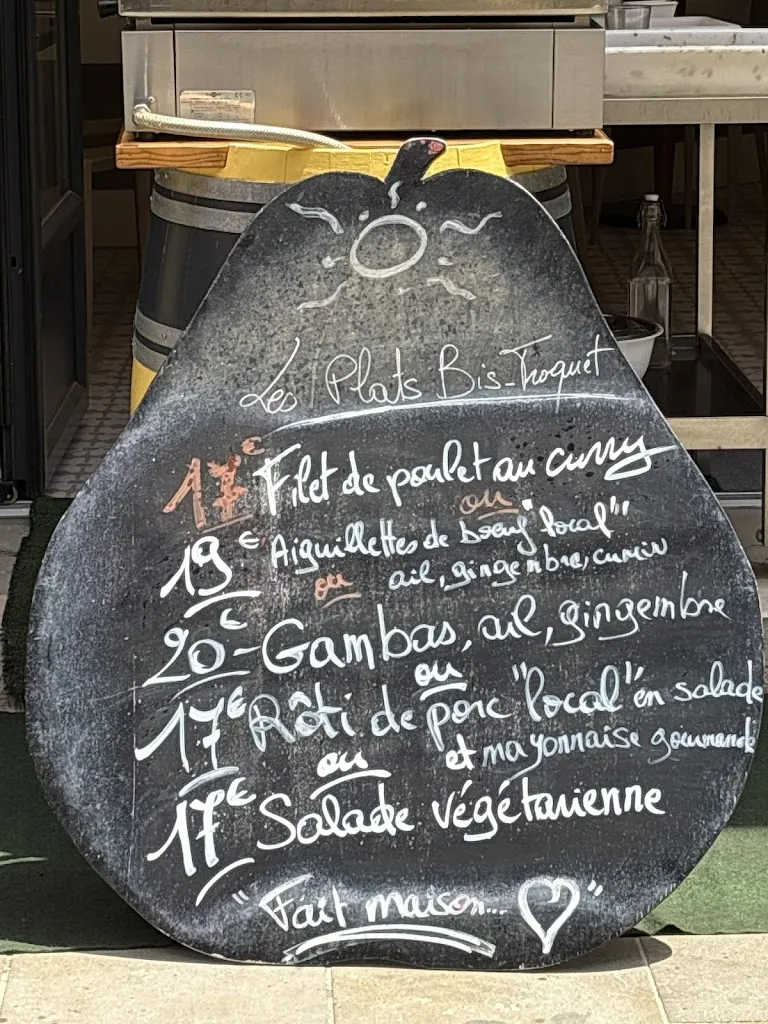 Les Plats Bis-Troquet
17€ Filet de poulet au curry
ou
19€ Aiguillettes de bœuf "local"
ou ail, gingembre, cumin
20€ - Gambas, ail, gingembre
ou
17€ Rôti de porc "local" en salade
ou et mayonnaise gourmande
17€ Salade végétarienne
"Fait maison... ♡"